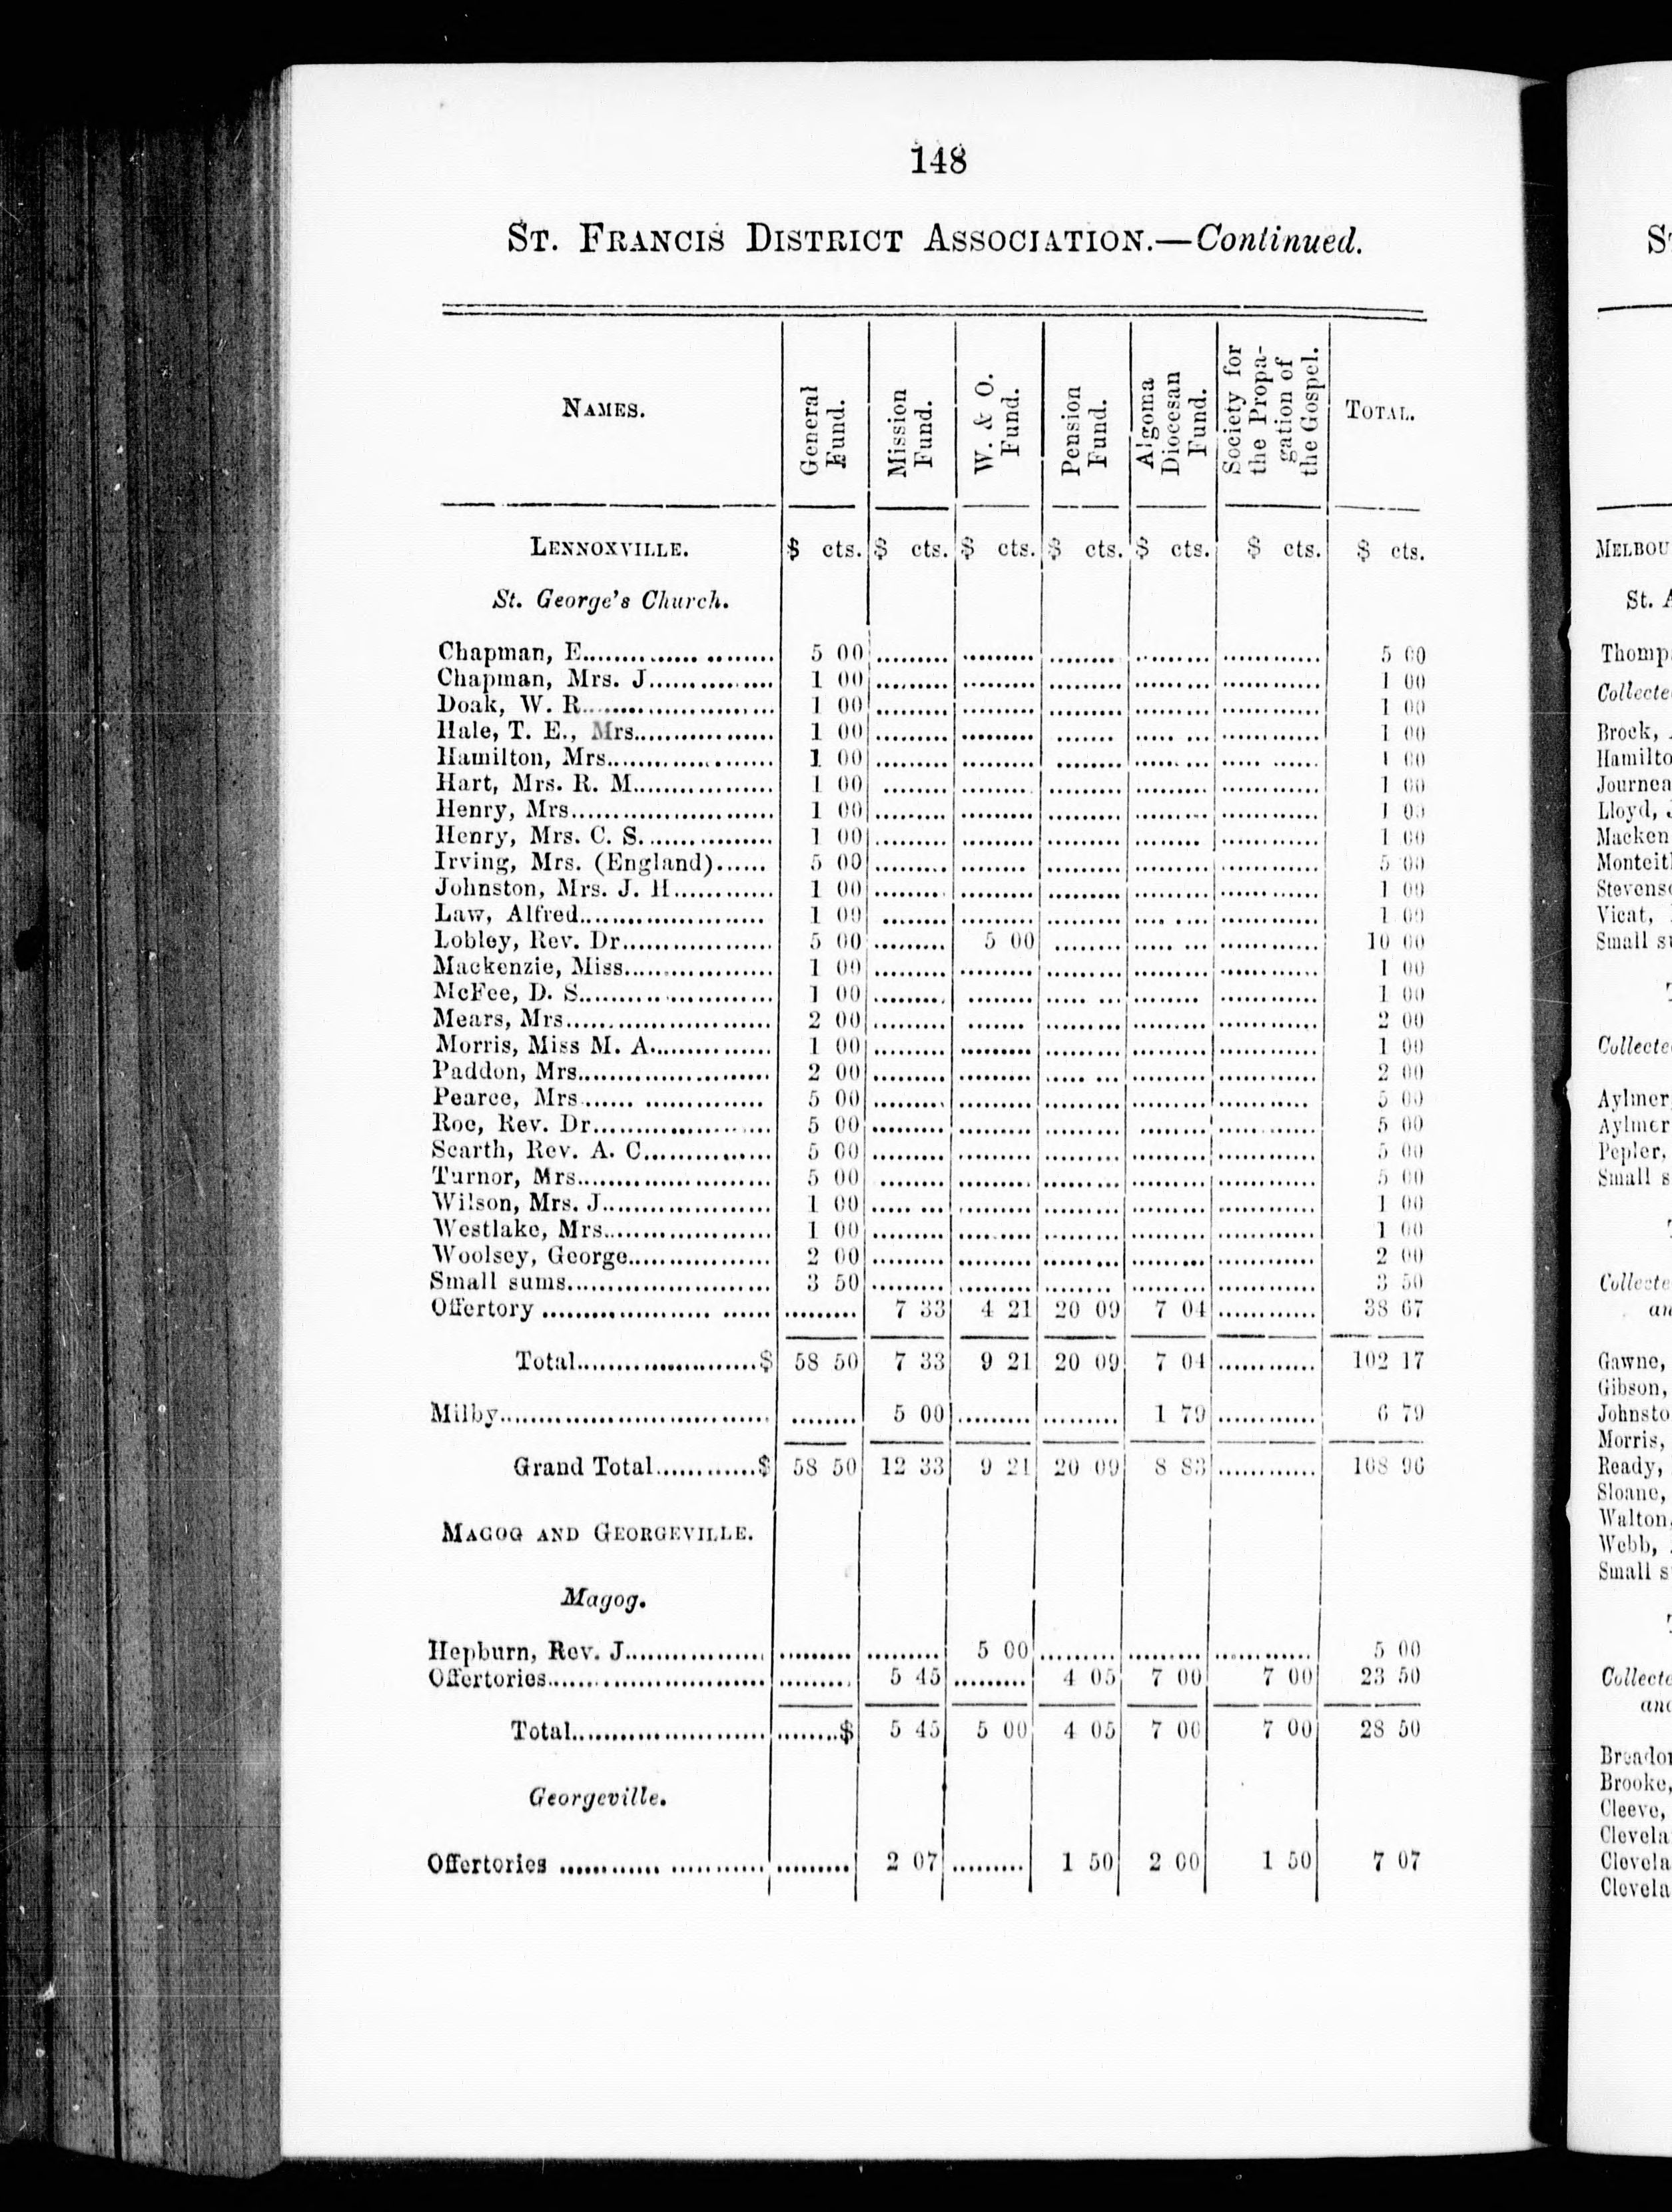 148
ST. FRANCIS DISTRICT ASSOCIATION.—Continued.
NAMES. General Fund. Mission Fund. W. & O. Fund. Pension Fund. Algoma Diocesan Fund. Society for the Propa-gation of the Gospel. TOTAL.
LENNOXVILLE. $ cts. $ cts. $ cts. $ cts. $ cts. $ cts. $ cts.
St. George's Church.
Chapman, E. 5 00 5 00
Chapman, Mrs. J. 1 00 1 00
Doak, W. R. 1 00 1 00
Hale, T. E., Mrs. 1 00 1 00
Hamilton, Mrs. 1 00 1 00
Hart, Mrs. R. M. 1 00 1 00
Henry, Mrs. 1 00 1 00
Henry, Mrs. C. S. 1 00 1 00
Irving, Mrs. (England) 5 00 5 00
Johnston, Mrs. J. H. 1 00 1 00
Law, Alfred 1 00 1 00
Lobley, Rev. Dr. 5 00 5 00 10 00
Mackenzie, Miss 1 00 1 00
McFee, D. S. 1 00 1 00
Mears, Mrs. 2 00 2 00
Morris, Miss M. A. 1 00 1 00
Paddon, Mrs. 2 00 2 00
Pearce, Mrs. 5 00 5 00
Roe, Rev. Dr. 5 00 5 00
Scarth, Rev. A. C. 5 00 5 00
Turnor, Mrs. 5 00 5 00
Wilson, Mrs. J. 1 00 1 00
Westlake, Mrs. 1 00 1 00
Woolsey, George 2 00 2 00
Small sums 3 50 3 50
Offertory 7 33 4 21 20 09 7 04 38 67
Total $ 58 50 7 33 9 21 20 09 7 04 102 17
Milby 5 00 1 79 6 79
Grand Total $ 58 50 12 33 9 21 20 09 8 83 108 96
MAGOG AND GEORGEVILLE.
Magog.
Hepburn, Rev. J. 5 00 5 00
Offertories 5 45 4 05 7 00 7 00 23 50
Total $ 5 45 5 00 4 05 7 00 7 00 28 50
Georgeville.
Offertories 2 07 1 50 2 00 1 50 7 07
MELBOU
St.
Thomp
Collecte
Brock,
Hamilto
Journea
Lloyd,
Macken
Monteit
Stevens
Vicat,
Small s
Collecte
Aylmer
Aylmer
Pepler,
Small s
Collecte
an
Gawne,
Gibson,
Johnsto
Morris,
Ready,
Sloane,
Walton,
Webb,
Small s
Collecte
and
Breador
Brooke,
Cleeve,
Clevela
Clevela
Clevela